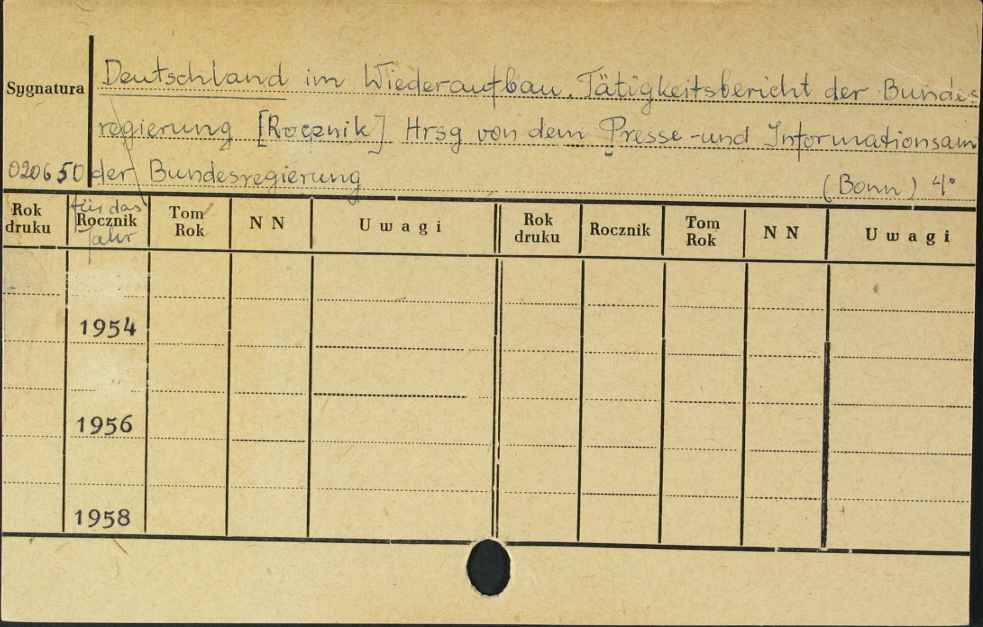 Sygnatura Deutschland im Wiederaufbau. Tätigkeitsbericht der Bundes-
regierung [Rocznik] Hrsg von dem Presse-und Informationsam
020650 der Bundesregierung (Bonn) 4°
für das
Rok druku Rocznik Tom Rok N N Uwagi Rok druku Rocznik Tom Rok N N Uwagi
Jahr
1954
1956
1958